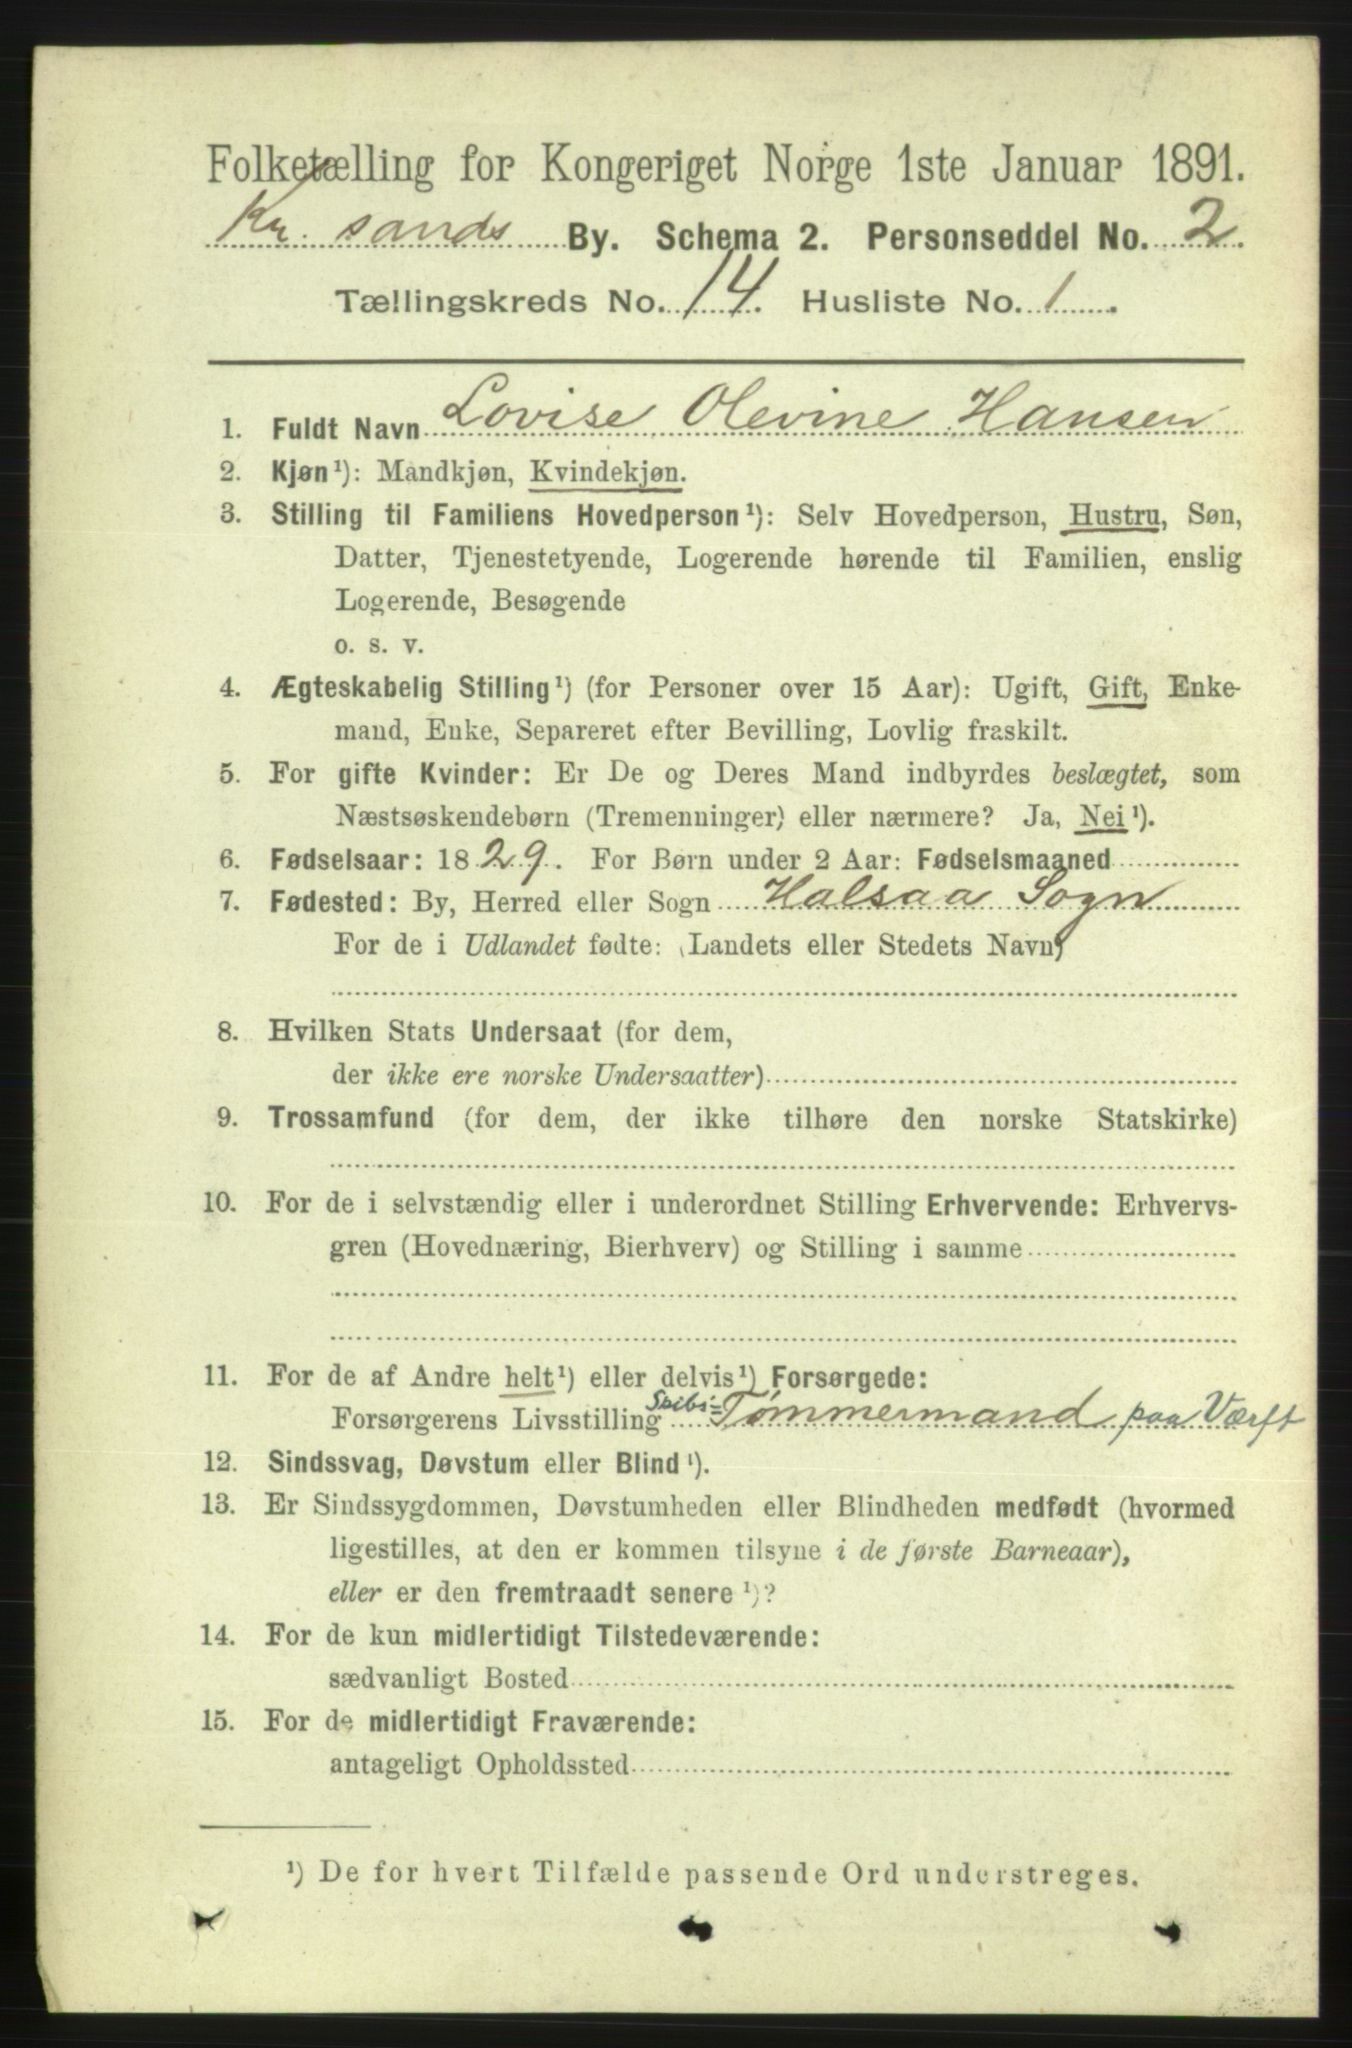 Folketælling for Kongeriget Norge 1ste Januar 1891.
Kr. sands By. Schema 2. Personseddel No. 2.
Tællingskreds No. 14. Husliste No. 1.
1. Fuldt Navn Lovise Olevine Hansen
2. Kjøn¹): Mandkjøn, Kvindekjøn.
3. Stilling til Familiens Hovedperson¹): Selv Hovedperson, Hustru, Søn,
Datter, Tjenestetyende, Logerende hørende til Familien, enslig
Logerende, Besøgende
o. s. v.
4. Ægteskabelig Stilling¹) (for Personer over 15 Aar): Ugift, Gift, Enke-
mand, Enke, Separeret efter Bevilling, Lovlig fraskilt.
5. For gifte Kvinder: Er De og Deres Mand indbyrdes beslægtet, som
Næstsøskendebørn (Tremenninger) eller nærmere? Ja, Nei¹).
6. Fødselsaar: 1829. For Børn under 2 Aar: Fødselsmaaned
7. Fødested: By, Herred eller Sogn Halsaa Sogn
For de i Udlandet fødte: (Landets eller Stedets Navn)
8. Hvilken Stats Undersaat (for dem,
der ikke ere norske Undersaatter)
9. Trossamfund (for dem, der ikke tilhøre den norske Statskirke)
10. For de i selvstændig eller i underordnet Stilling Erhvervende: Erhvervs-
gren (Hovednæring, Bierhverv) og Stilling i samme
11. For de af Andre helt¹) eller delvis¹) Forsørgede:
Forsørgerens Livsstilling Skibs=Tømmermand paa Værft
12. Sindssvag, Døvstum eller Blind¹).
13. Er Sindssygdommen, Døvstumheden eller Blindheden medfødt (hvormed
ligestilles, at den er kommen tilsyne i de første Barneaar),
eller er den fremtraadt senere¹)?
14. For de kun midlertidigt Tilstedeværende:
sædvanligt Bosted
15. For de midlertidigt Fraværende:
antageligt Opholdssted
¹) De for hvert Tilfælde passende Ord understreges.